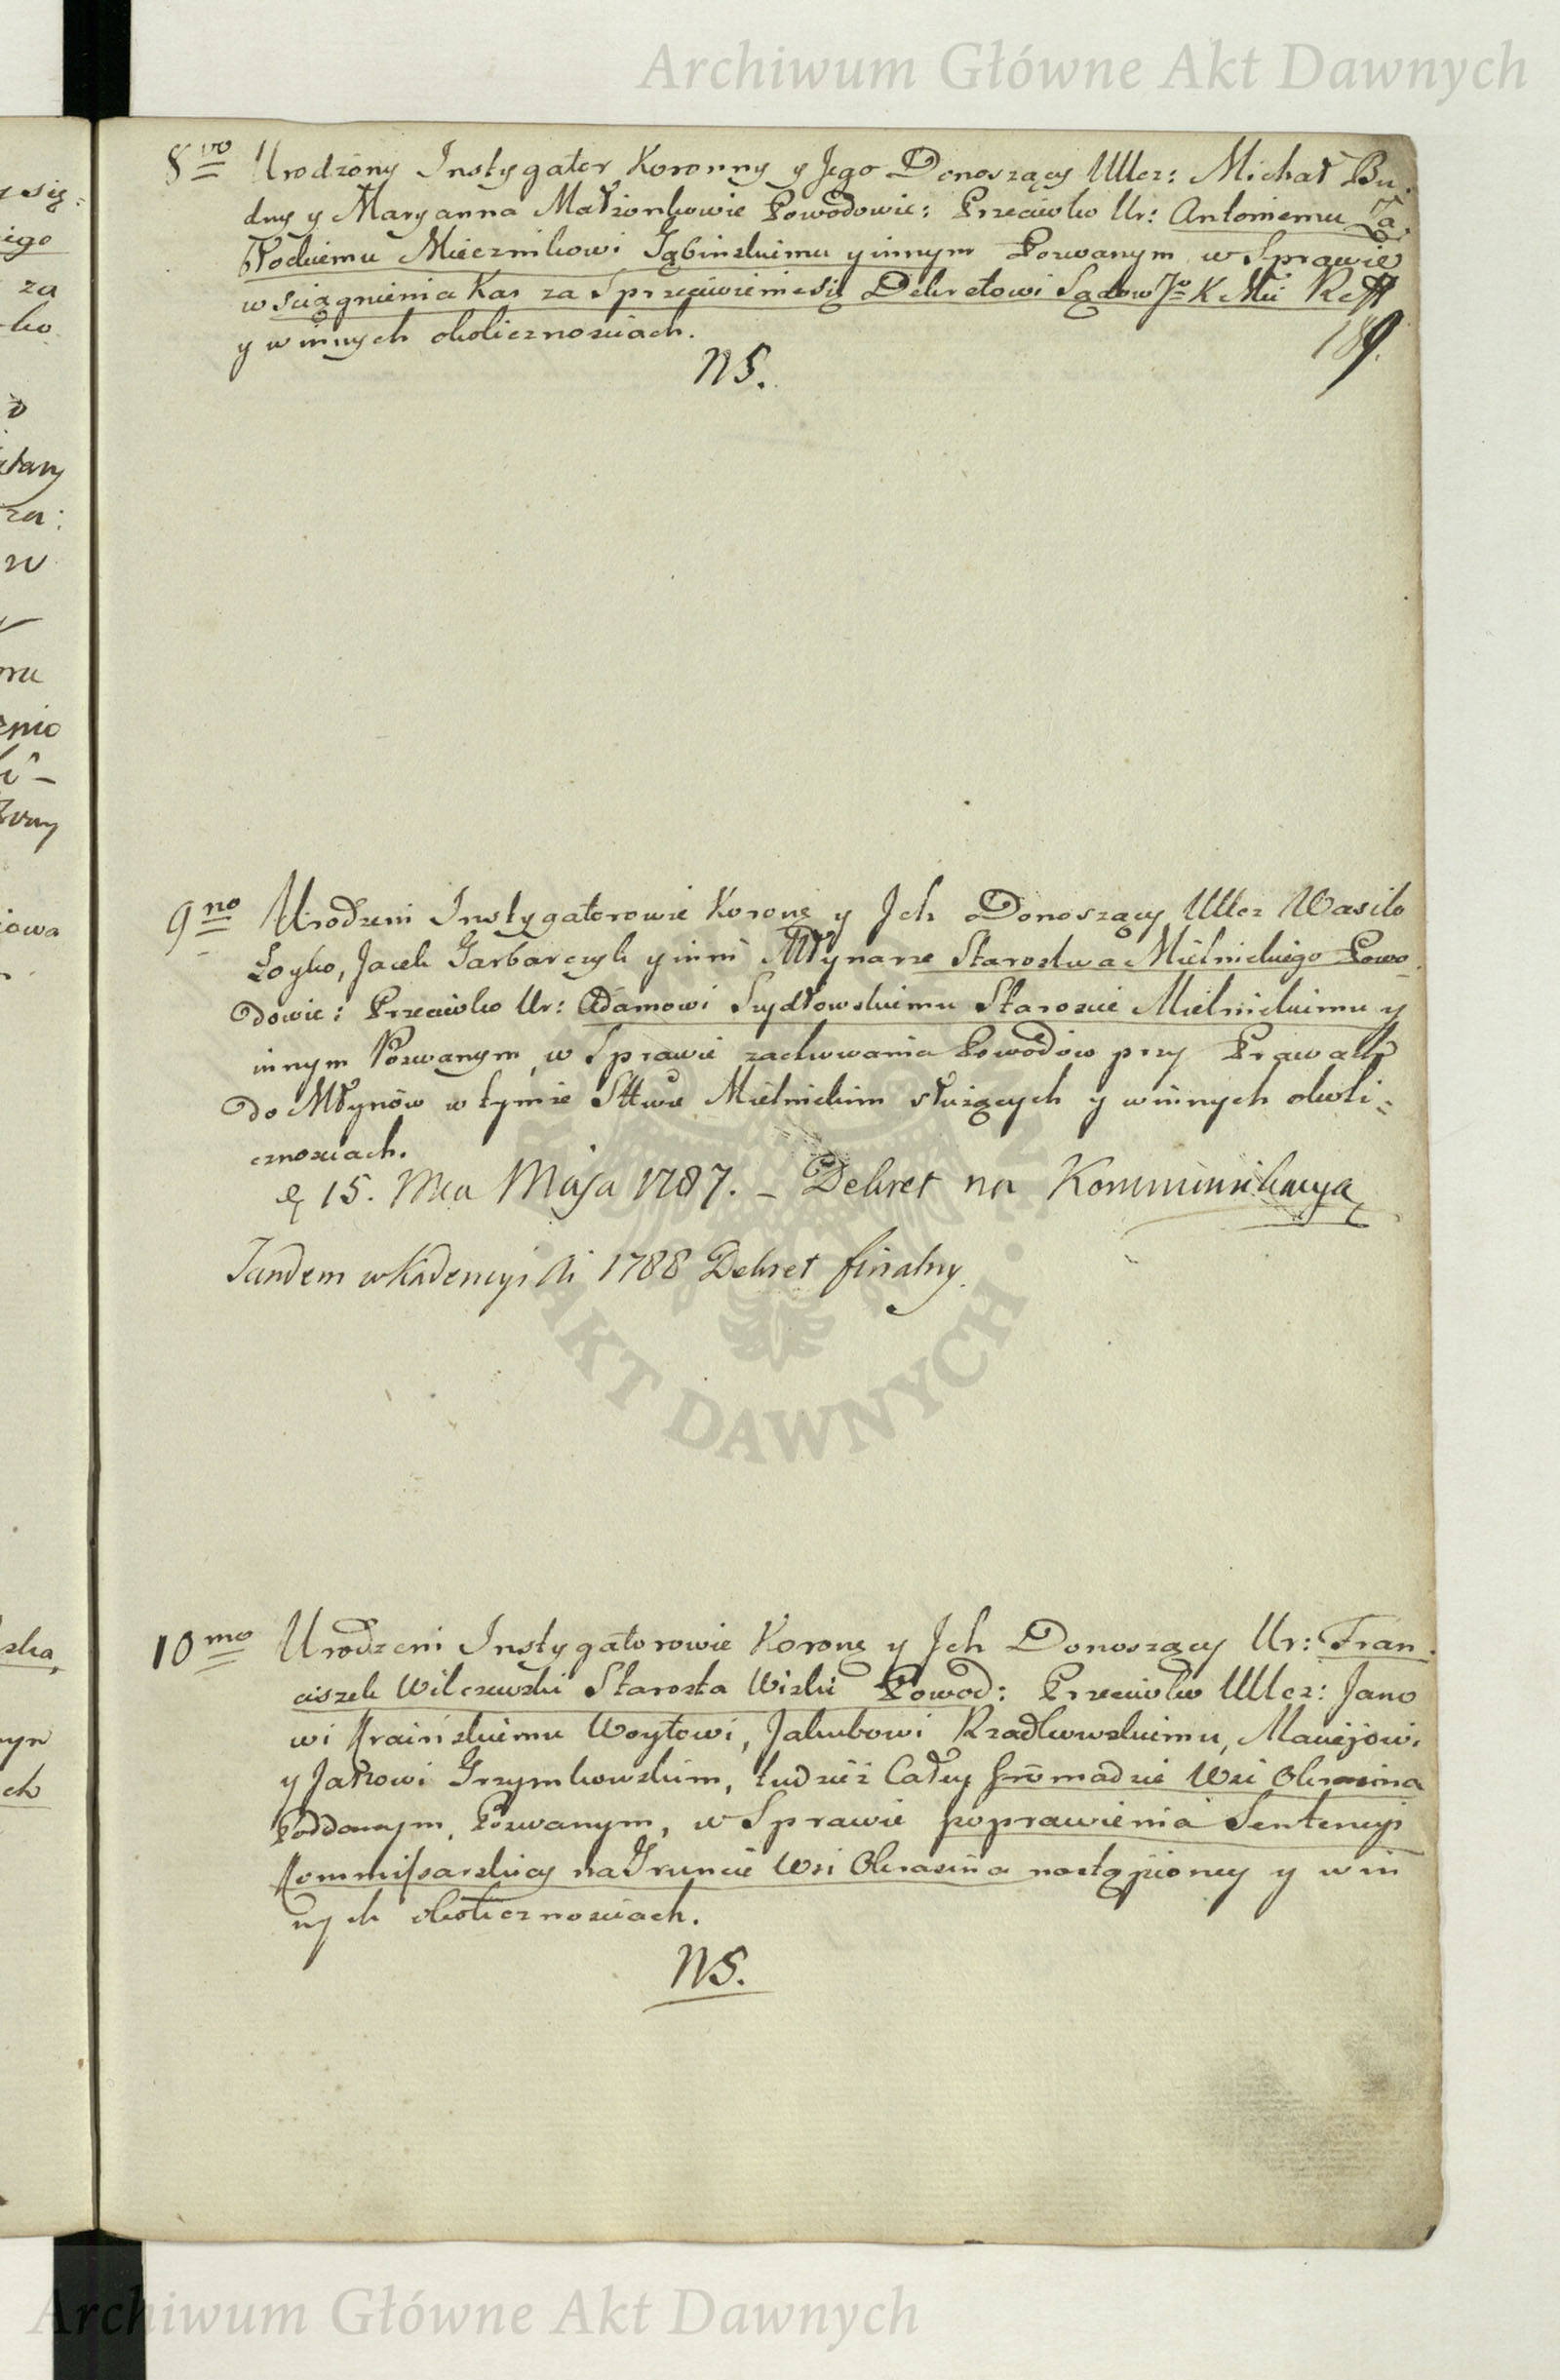 Archiwum Główne Akt Dawnych
8vo Urodzony Instygator Koronny y Jego Donoszący UUcz: Michał Bu-
dny y Maryanna Małżonkowie Powodowie: Przeciwko Ur: Antoniemu Za-
błockiemu Miecznikowi Gąbinskiemu y innym Pozwanym w Sprawie
wsciągnienia Kar za Sprzeciwienie się Dekretowi Sądow Jo K Mci Reff
y w innych okolicznosciach.
189.
NS.
9no Urodzeni Instygatorowie Korony y Ich Donoszący UUcz Wasilo
Łoyko, Jacek Garbarczyk y inni Młynarze Starostwa Mielnickiego Powo-
dowie: Przeciwko Ur: Adamowi Szydłowskiemu Staroscie Mielnickiemu y
innym Pozwanym, w Sprawie zachowania Powodow przy Prawach
do Młynów w tymże Sttwie Mielnickim służących y w innych okoli=
cznosciach.
15. Mca Maja 1787. – Dekret na Kommunikacyą
Tandem w Kadencyi Ai 1788 Dekret finalny.
10mo Urodzeni Instygatorowie Korony y Ich Donoszący Ur: Fran-
ciszek Wilczewski Starosta Wizki Powod: Przeciwko UUcz: Jano
wi Kraińskiemu Woytowi, Jakubowi Rzadkowskiemu, Maciejowi
y Janowi Grzymkowskim, tudzież Całey Gromadzie Wsi Okrasina
Poddanym, Pozwanym, w Sprawie poprawienia Sentencyi
Kommissarskiey na Gruncie Wsi Okrasina nastąpioney y w in
nych okolicznosciach.
NS.
AKT DAWNYCH
Archiwum Główne Akt Dawnych